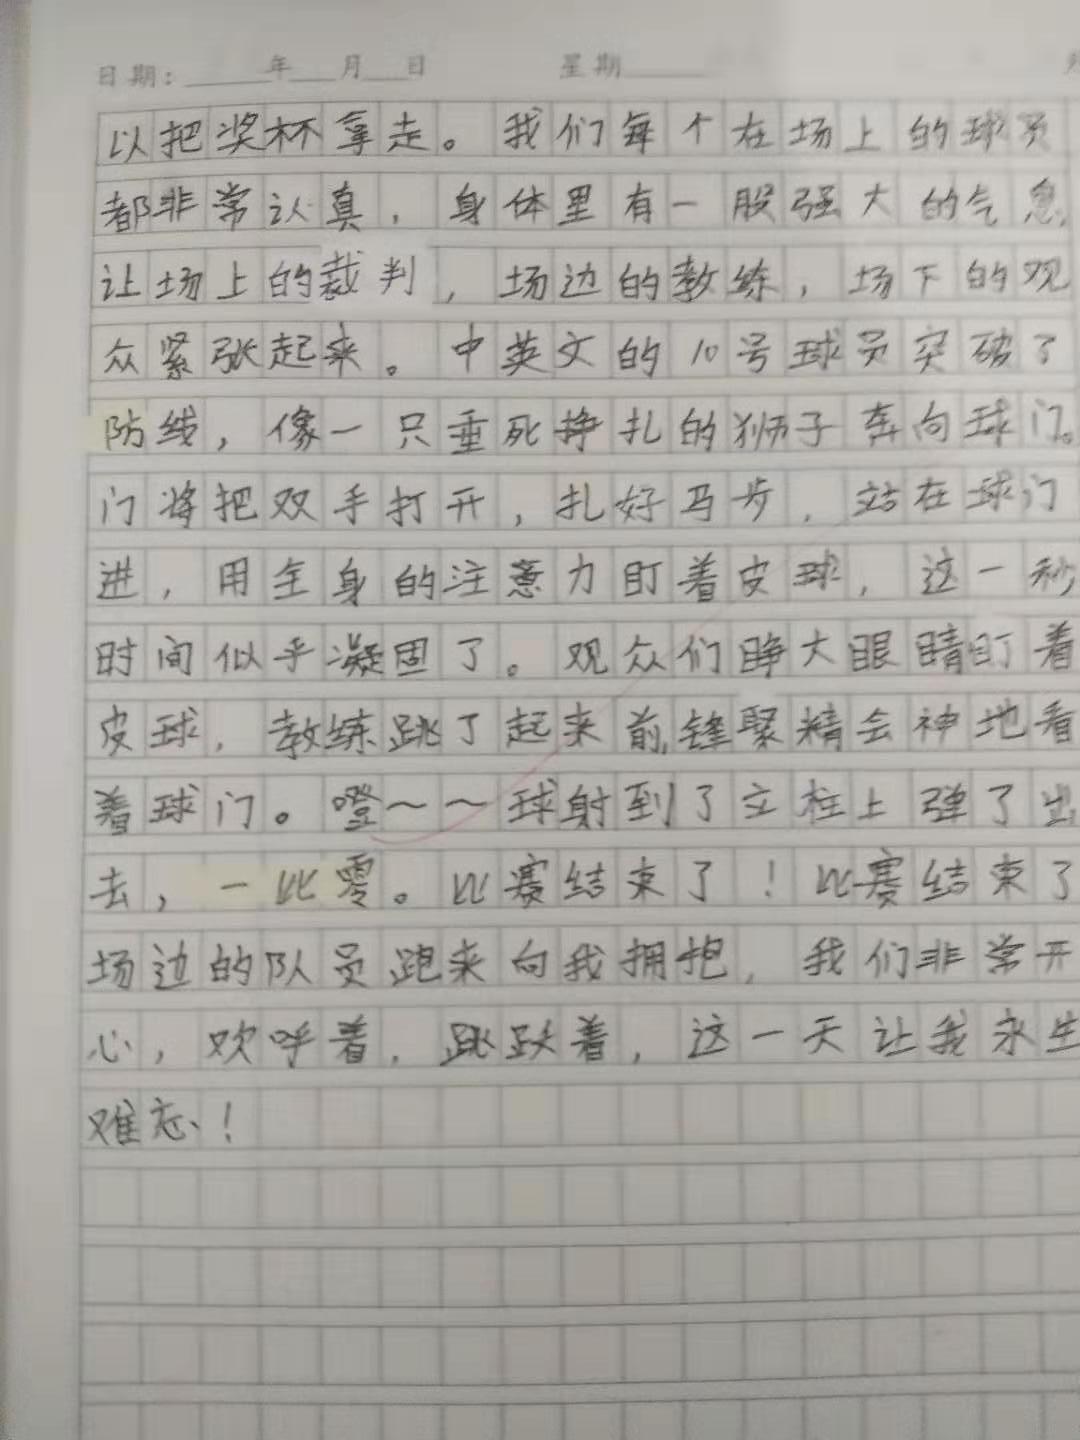 日期：______年___月___日 星期______
以把奖杯拿走。我们每个在场上的球员
都非常认真，身体里有一股强大的气息，
让场上的裁判，场边的教练，场下的观
众紧张起来。中英文的10号球员突破了
防线，像一只垂死挣扎的狮子奔向球门。
门将把双手打开，扎好马步，站在球门
进，用全身的注意力盯着皮球，这一秒
时间似乎凝固了。观众们睁大眼睛盯着
皮球，教练跳了起来前，锋聚精会神地看
着球门。噔～～球射到了立柱上弹了出
去，一比零。比赛结束了！比赛结束了
场边的队员跑来向我拥抱，我们非常开
心，欢呼着，跳跃着，这一天让我永生
难忘！